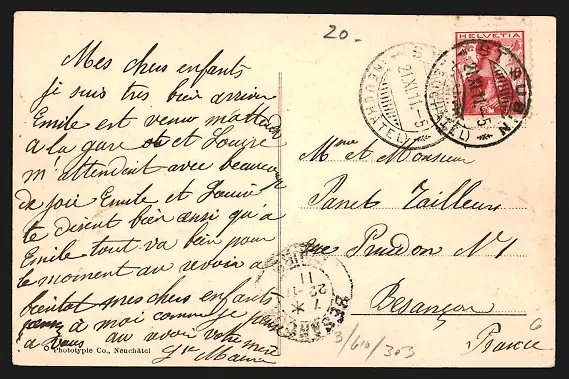 20-
Mes chers enfants
je suis très bien arrivée
Emile est venu
a la gare et Louise
m'attendait avec beaucoup
de joie Emile et Louise
te disent bien ainsi qu'a
Emile tout va bien pour
le moment au revoir a
bientot mes chers enfants
a moi comme je
a vous au revoir votre mère
© Phototypie Co., Neuchâtel
HELVETIA
ST AUBIN
(NEUCHATEL)
21.XI.11.-5
ST AUBIN
(NEUCHATEL)
21.XI.11.-5
Mme et Monsieur
Panets Tailleur
rue Prudon No 1
Besançon
France
BESANCON
22
11
3/610/303
6